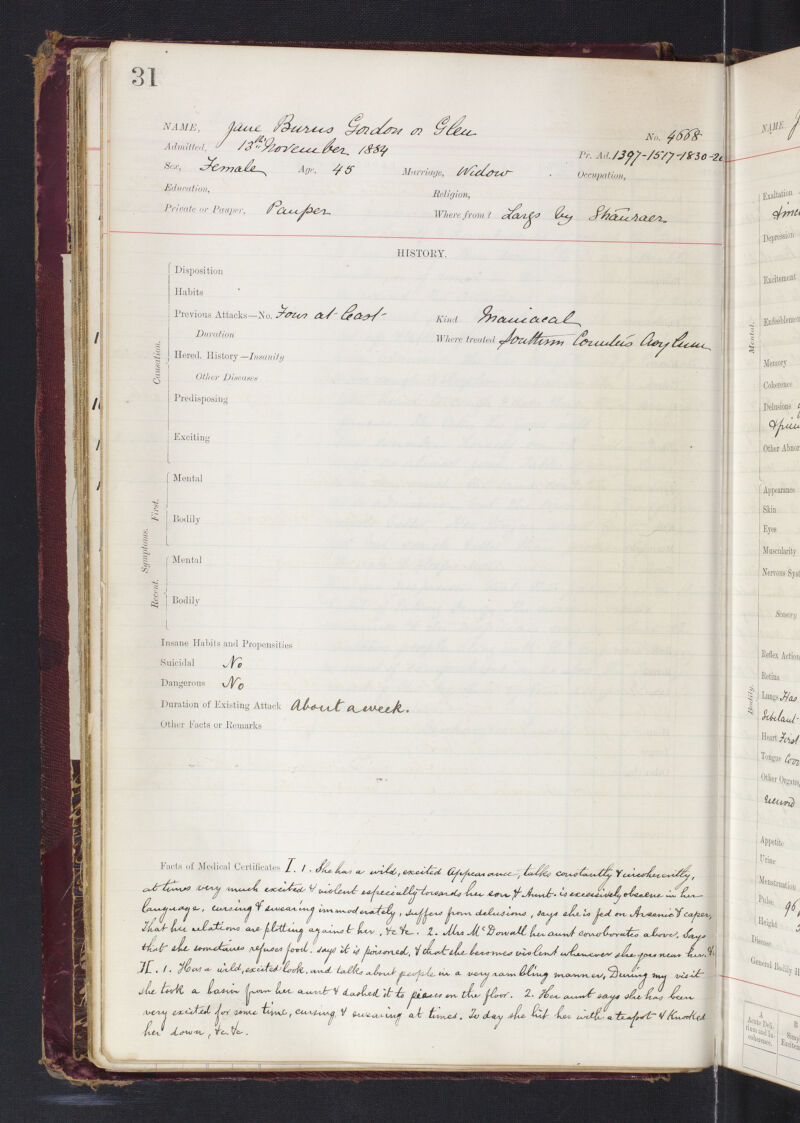 31
NAME, Jane Burns Gordon or Glen No. 4668
Admitted, 13th November 1884 Pr. Ad. 1397-1517-1830-20
Sex, Female Age, 45 Marriage, Widow Occupation,
Education, Religion,
Private or Pauper, Pauper Where from? Largs by Stranraer
HISTORY.
Causation.
Disposition
Habits
Previous Attacks—No. Four at least Kind Maniacal
Duration Where treated Southern Counties Asylum
Hered. History—Insanity
Other Diseases
Predisposing
Exciting
Symptoms.
First.
Mental
Bodily
Recent.
Mental
Bodily
Insane Habits and Propensities
Suicidal No
Dangerous No
Duration of Existing Attack About a week.
Other Facts or Remarks
Facts of Medical Certificates I. 1. She has a wild, excited appearance, talks constantly & incoherently,
at times very much excited & violent especially towards her son & Aunt. is excessively obscene in her
language, cursing & swearing immoderately, suffers from delusions, says she is fed on Arsenic & caper,
that her relations are plotting against her, &c &c. 2. Mrs McDowall her aunt corroborates above. Says
that she sometimes refuses food. says it is poisoned, & that she becomes violent whenever she goes near her. &c
II. 1. Has a wild, excited look, and talks about people in a very rambling manner, During my visit
she took a basin from her aunt & dashed it to pieces on the floor. 2. Her aunt says she has been
very excited for some time, cursing & swearing at times. To day she hit her with a teapot & knocked
her down, &c &c.
NAME
Exaltation
Depression
Excitement
Mental.
Memory
Coherence
Delusions
Other Abnor
Appearance
Skin
Eyes
Muscularity
Nervous Syst
Sensory
Reflex Action
Retina
Bodily.
Lungs Has
Sibilant
Heart First
Tongue
Other Organs,
Appetite
Urine
Menstruation
Pulse 96
Height
Disease
General Bodily H
A
Acute Deli-
rious and In-
coherence.
B